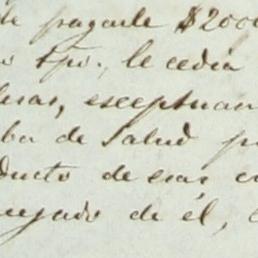 de pagarle $200
s tpo., le cedia
esceptuan
ba de Salud p
ducto de esas c
uejado de él,